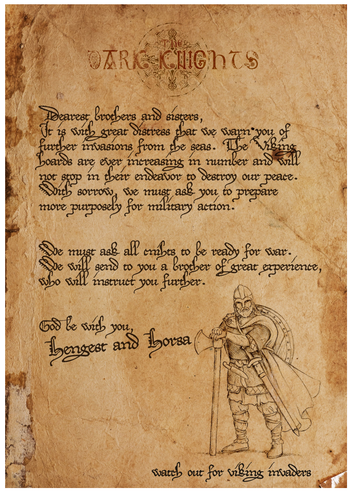 THE
DARK KNIGHTS
Dearest brothers and sisters,
It is with great distress that we warn you of
further invasions from the seas. The Viking
hoards are ever increasing in number and will
not stop in their endeavor to destroy our peace.
With sorrow, we must ask you to prepare
more purposely for military action.
We must ask all cnihts to be ready for war.
We will send to you a brother of great experience,
who will instruct you further.
God be with you,
Hengest and Horsa
watch out for viking invaders